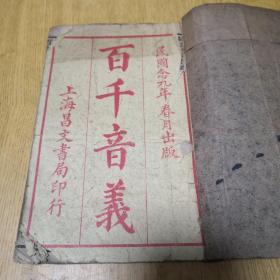 民國念九年春月出版
百千音義
上海昌文書局印行